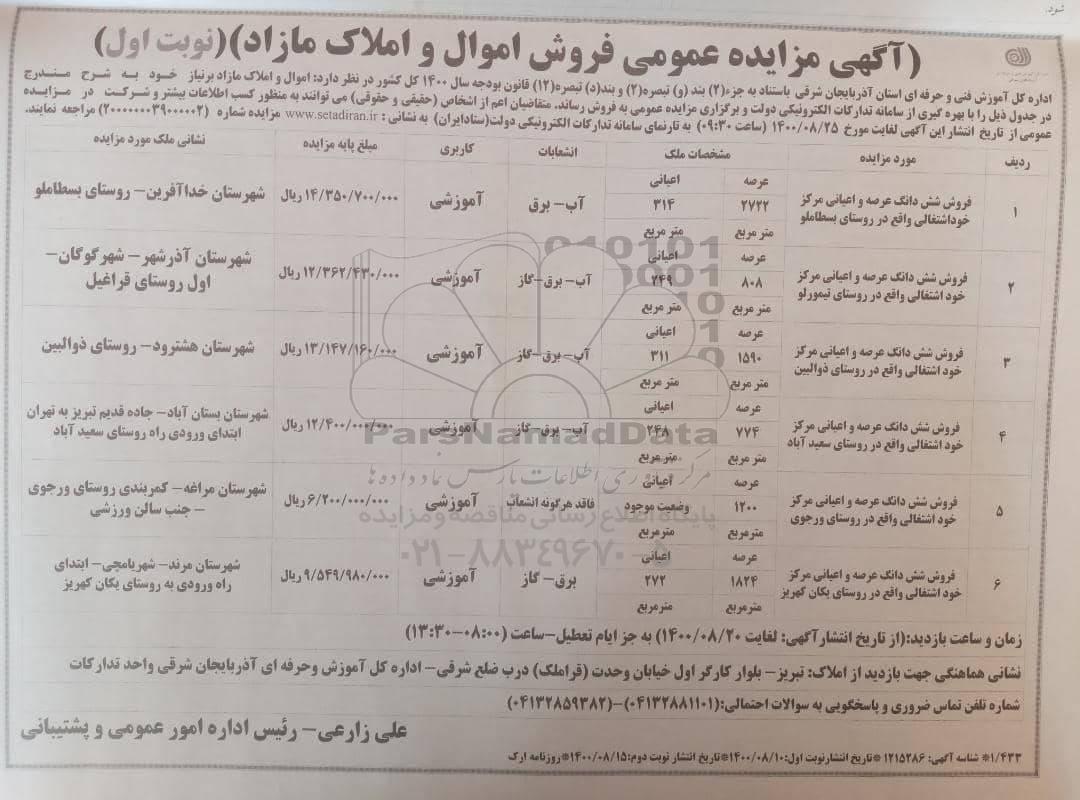 شود.
(آگهی مزایده عمومی فروش اموال و املاک مازاد)(نوبت اول)
اداره کل آموزش فنی و حرفه ای استان آذربایجان شرقی باستناد به جزء(۲) بند (و) تبصره(۲) و بند(د) تبصره(۱۲) قانون بودجه سال ۱۴۰۰ کل کشور در نظر دارد: اموال و املاک مازاد برنیاز خود به شرح مندرج
در جدول ذیل را با بهره گیری از سامانه تدارکات الکترونیکی دولت و برگزاری مزایده عمومی به فروش رساند. متقاضیان اعم از اشخاص (حقیقی و حقوقی) می توانند به منظور کسب اطلاعات بیشتر و شرکت در مزایده
عمومی از تاریخ انتشار این آگهی لغایت مورخ ۱۴۰۰/۰۸/۲۵ (ساعت ۰۹:۳۰) به تارنمای سامانه تدارکات الکترونیکی دولت(ستادایران) به نشانی : www.setadiran.ir مزایده شماره (۲۰۰۰۰۰۰۳۹۰۰۰۰۰۲) مراجعه نمایند.
ردیف مورد مزایده مشخصات ملک انشعابات کاربری مبلغ پایه مزایده نشانی ملک مورد مزایده
۱ فروش شش دانگ عرصه و اعیانی مرکز خوداشتغالی واقع در روستای بسطاملو عرصه ۲۷۲۲ متر مربع اعیانی ۳۱۴ متر مربع آب- برق آموزشی ۱۴/۳۵۰/۷۰۰/۰۰۰ ریال شهرستان خداآفرین- روستای بسطاملو
۲ فروش شش دانگ عرصه و اعیانی مرکز خود اشتغالی واقع در روستای تیمورلو عرصه ۸۰۸ متر مربع اعیانی ۲۴۹ متر مربع آب- برق-گاز آموزشی ۱۲/۳۶۲/۴۳۰/۰۰۰ ریال شهرستان آذرشهر- شهرگوگان- اول روستای قراغیل
۳ فروش شش دانگ عرصه و اعیانی مرکز خود اشتغالی واقع در روستای ذوالبین عرصه ۱۵۹۰ متر مربع اعیانی ۳۱۱ متر مربع آب-برق-گاز آموزشی ۱۳/۱۴۷/۱۶۰/۰۰۰ ریال شهرستان هشترود- روستای ذوالبین
۴ فروش شش دانگ عرصه و اعیانی مرکز خود اشتغالی واقع در روستای سعید آباد عرصه ۷۷۴ متر مربع اعیانی ۲۴۸ متر مربع آب-برق-گاز آموزشی ۱۲/۴۰۰/۰۰۰/۰۰۰ ریال شهرستان بستان آباد- جاده قدیم تبریز به تهران ابتدای ورودی راه روستای سعید آباد
۵ فروش شش دانگ عرصه و اعیانی مرکز خود اشتغالی واقع در روستای ورجوی عرصه ۱۲۰۰ مترمربع اعیانی وضعیت موجود مترمربع فاقد هرگونه انشعاب آموزشی ۶/۲۰۰/۰۰۰/۰۰۰ ریال شهرستان مراغه- کمربندی روستای ورجوی - جنب سالن ورزشی
۶ فروش شش دانگ عرصه و اعیانی مرکز خود اشتغالی واقع در روستای یکان کهریز عرصه ۱۸۲۴ مترمربع اعیانی ۲۷۲ مترمربع برق- گاز آموزشی ۹/۵۴۹/۹۸۰/۰۰۰ ریال شهرستان مرند- شهریامچی- ابتدای راه ورودی به روستای یکان کهریز
زمان و ساعت بازدید:(از تاریخ انتشارآگهی: لغایت ۱۴۰۰/۰۸/۲۰) به جز ایام تعطیل-ساعت (۰۸:۰۰-۱۳:۳۰)
نشانی هماهنگی جهت بازدید از املاک: تبریز- بلوار کارگر اول خیابان وحدت (قراملک) درب ضلع شرقی- اداره کل آموزش وحرفه ای آذربایجان شرقی واحد تدارکات
شماره تلفن تماس ضروری و پاسخگویی به سوالات احتمالی:(۰۴۱۳۲۸۸۱۱۰۱)-(۰۴۱۳۲۸۵۹۳۸۲)
علی زارعی- رئیس اداره امور عمومی و پشتیبانی
۱/۴۳۳* شناسه آگهی: ۱۲۱۵۲۸۶ *تاریخ انتشارنوبت اول:۱۴۰۰/۰۸/۱۰*تاریخ انتشار نوبت دوم:۱۴۰۰/۰۸/۱۵*روزنامه ارک
ParsNamadData
مرکز فرآوری اطلاعات پارس نماد داده ها
پایگاه اطلاع رسانی مناقصه و مزایده
۰۲۱-۸۸۳۴۹۶۷۰-۵